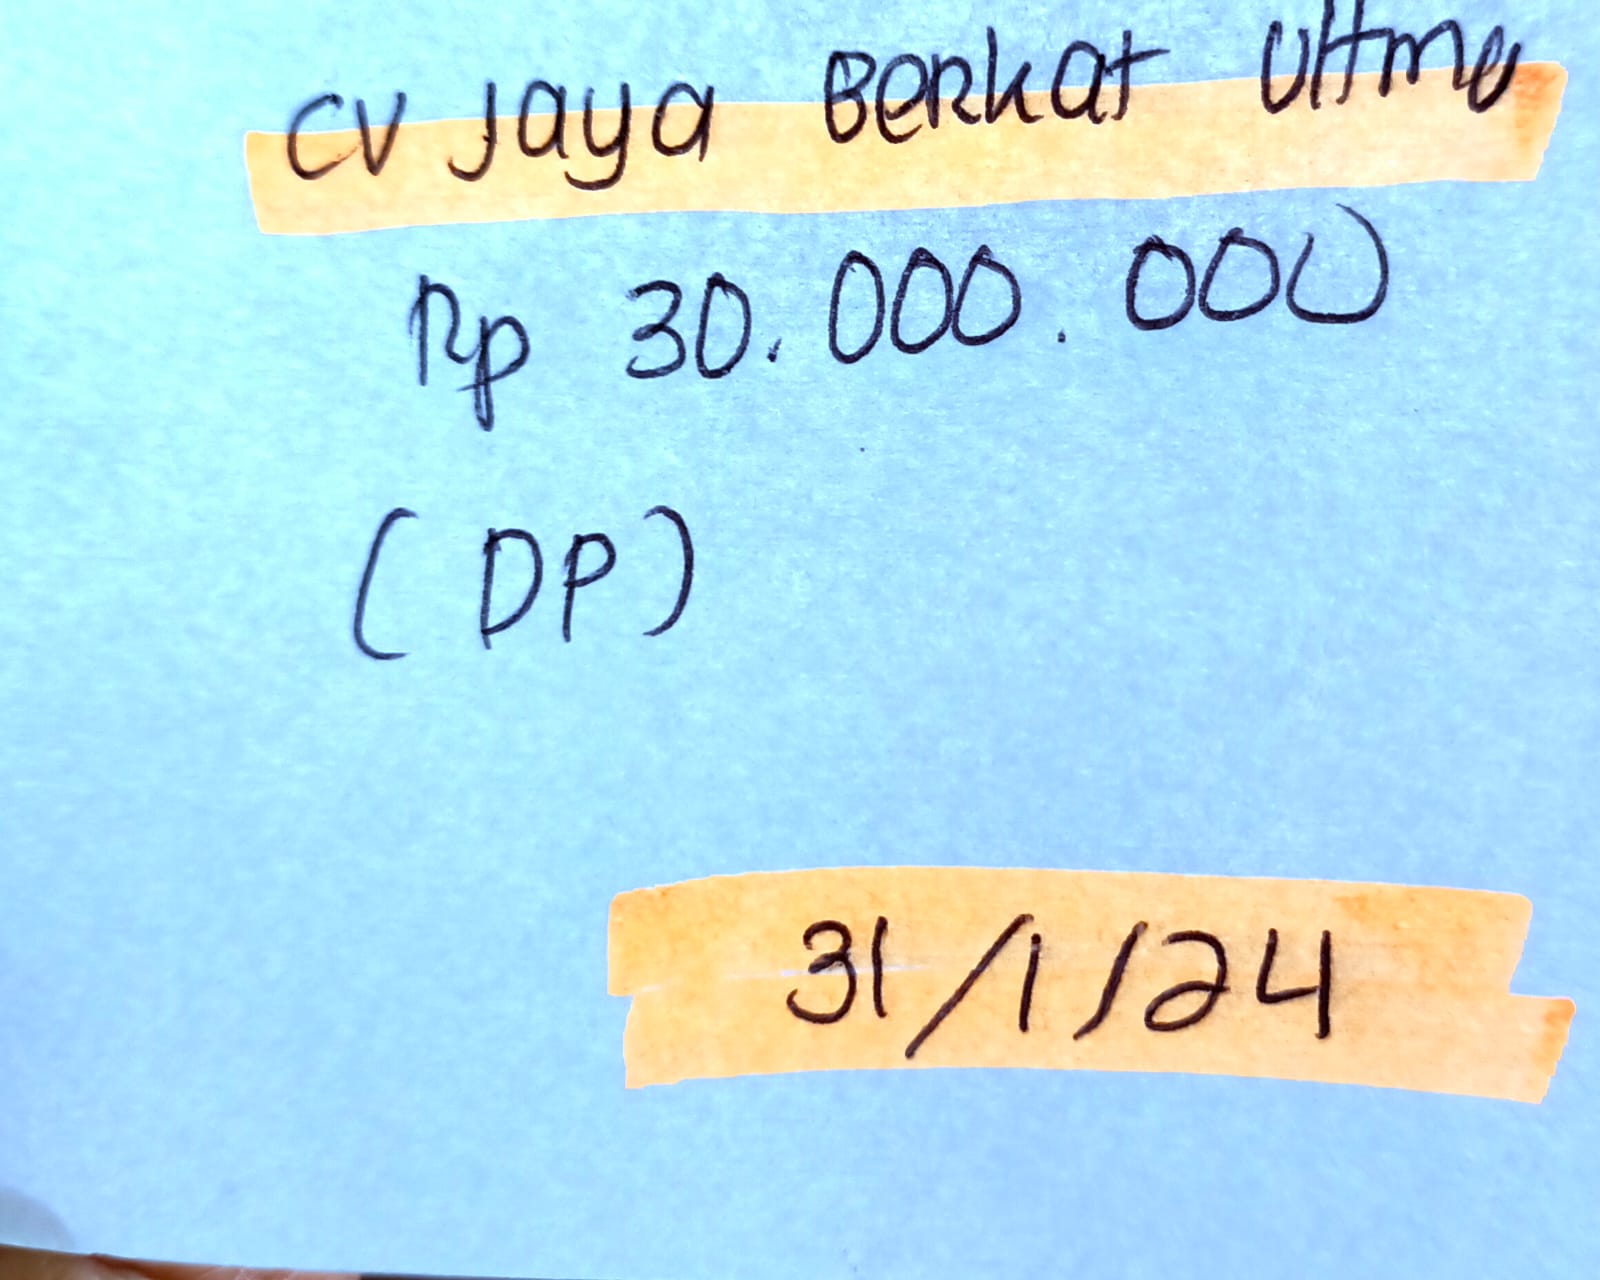 CV Jaya Berkat Utma
Rp 30.000.000
(DP)
31/1/24